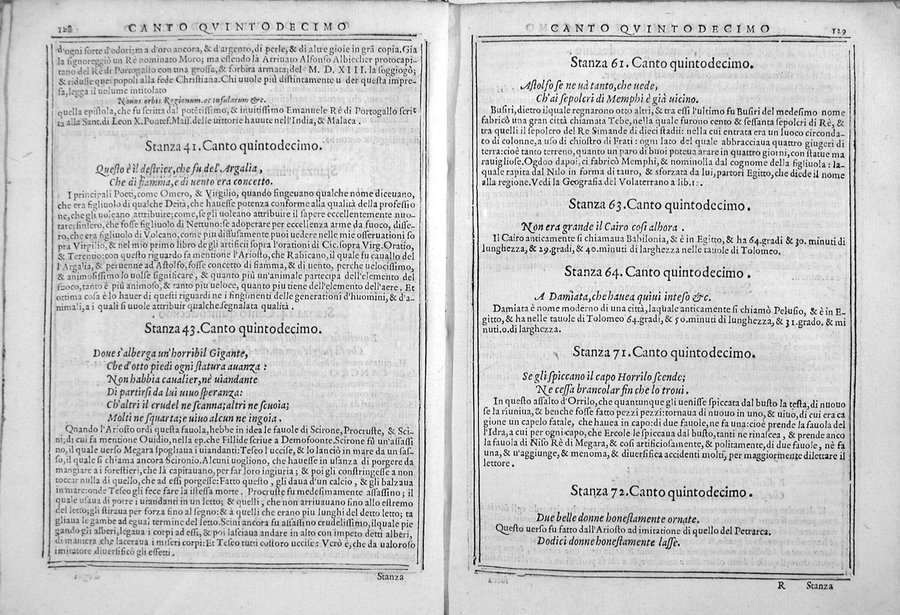 128 CANTO QVINTODECIMO
d'ogni sorte d'odori; ma d'oro ancora, & d'argento, di perle, & di altre gioie in grã copia. Già
la signoreggiò un Re nominato Moro; ma essendo là Arriuato Alfonso Albiecher protocapi-
tano del Rè di Portogallo con una grossa, & forbita armata; del M. D. XIII. la soggiogò;
& ridusse quei popoli alla fede Christiana. Chi uuole più distintamente ui desta impre
sa, legga il volume intitolato
Nouus orbis Regionum, ac insularum &c.
quella epistola, che fu scritta dal potentissimo, & inuittissimo Emanuele Rè di Portogallo scrit
ta alla Sant. di Leon X. Pontef. Mass. delle uittorie hauute nell'India, & Malaca.
Stanza 41. Canto quintodecimo.
Questo è il destrier, che fu del' Argalia,
Che di fiamma, e di uento era concetto.
I principali Poeti, come Omero, & Virgilio, quando fingeuano qualche nome diceuano,
che era figliuolo di qualche Deità, che hauesse potenza conforme alla qualità della professio
ne, che gli uoleano attribuire; come, se gli uoleano attribuire il sapere eccellentemente nuo-
tare; finsero, che fosse figliuolo di Nettuno: se adoperar per eccellenza arme da fuoco, disse-
ro, che era figliuolo di Volcano, come piu diffusamente puoi uedere nelle mie osseruationi so
pra Virgilio, & nel mio primo libro de gli artificii sopra l'orationi di Cic. sopra Virg. Oratio,
& Terentio: con questo riguardo fa mentione l'Ariosto, che Rabicano, il quale fu cauallo del
l'Argalia, & peruenne ad Astolfo, fosse concetto di fiamma, & di uento, perche uelocissimo,
& animosissimo lo uolse significare, & quanto più un'animale partecipa dell'elemento del
fuoco, tanto è più animoso, & tanto piu ueloce, quanto piu tiene dell'elemento dell'aere. Et
ottima cosa è lo hauer di questi riguardi ne i fingimenti delle generationi d'huomini, & d'a-
nimali, a i quali si uuole attribuir qualche segnalata qualità.
Stanza 43. Canto quintodecimo.
Doue s'alberga un'horribil Gigante,
Che d'otto piedi ogni statura auanza:
Non habbia caualier, nè uiandante
Di partirsi da lui uiuo speranza:
Ch'altri il crudel ne scanna; altri ne scuoia;
Molti ne squarta; e uiuo alcun ne ingoia.
Quando l'Ariosto ordì questa fauola, hebbe in idea le fauole di Scirone, Procruste, & Sci-
ni; di cui fa mentione Ouidio, nella ep. che Fillide scriue a Demofoonte. Scirone fù un'assassi
no, il quale uerso Megara spogliaua i uiandanti: Teseo l'uccise, & lo lanciò in mare da un sas-
so, il quale si chiama ancora Scironio. Alcuni uogliono, che hauesse in usanza di porgere da
mangiare a i forestieri, che là capitauano, per far loro ingiuria; & poi gli constringesse a non
toccar nulla di quello, che ad essi porgesse: Fatto questo, gli daua d'un calcio, & gli balzaua
in mare: onde Teseo gli fece fare la istessa morte. Procruste fu medesimamente assassino; il
quale usaua di porre i uiandanti in un letto; & quelli, che non arriuauano fino allo estremo
del letto; gli stiraua per forza fino al segno: & à quelli che erano piu lunghi del detto letto; ta
gliaua le gambe ad egual termine del letto. Scini ancora fu assassino crudelissimo, il quale pie
gando gli alberi, legaua i corpi ad essi, & poi lasciaua andare in alto con impeto detti alberi,
di maniera che laceraua i miseri corpi: Et Teseo tutti costoro uccise: Verò è, che da ualoroso
imitatore diuersificò gli effetti.
Stanza
CANTO QVINTODECIMO 129
Stanza 61. Canto quintodecimo.
Astolfo se ne uà tanto, che uede,
Ch'ai sepolcri di Memphi è già uicino.
Busiri, dietro il quale regnarono otto altri, & tra essi l'ultimo fu Busiri del medesimo nome
fabricò una gran città chiamata Tebe, nella quale furono cento & sessanta sepolcri di Rè, &
tra quelli il sepolcro del Re Simande di dieci stadii: nella cui entrata era un luoco circonda-
to di colonne, a uso di chiostro di Frati: ogni lato del quale abbracciaua quattro giugeri di
terra cioè tanto terreno, quanto un paro di buoi poteua arare in quattro giorni, con statue ma
rauigliose. Ogdoo dapoi, ci fabricò Memphi, & nominolla dal cognome della figliuola: la-
quale rapita dal Nilo in forma di tauro, & sforzata da lui, partorì Egitto, che diede il nome
alla regione. Vedi la Geografia del Volaterrano a lib. 12.
Stanza 63. Canto quintodecimo.
Non era grande il Cairo così alhora.
Il Cairo anticamente si chiamaua Babilonia, & è in Egitto, & ha 64. gradi & 30. minuti di
lunghezza, & 29. gradi, & 40. minuti di larghezza nelle tauole di Tolomeo.
Stanza 64. Canto quintodecimo.
A Damiata, che hauea quiui inteso &c.
Damiata è nome moderno di una città, laquale anticamente si chiamò Pelusio, & è in E-
gitto, & ha nelle tauole di Tolomeo 64. gradi, & 50. minuti di lunghezza, & 31. grado. & mi
nuti. 0. di larghezza.
Stanza 71. Canto quintodecimo.
Se gli spiccano il capo Horrilo scende;
Ne cessa brancolar fin che lo troui.
In questo assalto d'Orrilo, che quantunque gli uenisse spiccata dal busto la testa, di nuouo
se la riuniua, & benche fosse fatto pezzi pezzi: tornaua di nuouo in uno, & uiuo, di cui era ca
gione un capelo fatale, che hauea in capo: di due fauole, ne fa una: cioè prende la fauola del
l'Idra, a cui per ogni capo, che Ercole le spiccaua dal busto, tanti ne rinascea, & prende anco
la fauola di Niso Rè di Megara, & così artificiosamente, & politamente, di due fauole, nè fa
una, & u'aggiunge, & menoma, & diuersifica accidenti molti, per maggiormente dilettare il
lettore.
Stanza 72. Canto quintodecimo.
Due belle donne honestamente ornate.
Questo uerso fu fatto dall'Ariosto ad imitatione di quello del Petrarca.
Dodici donne honestamente lasse.
R Stanza